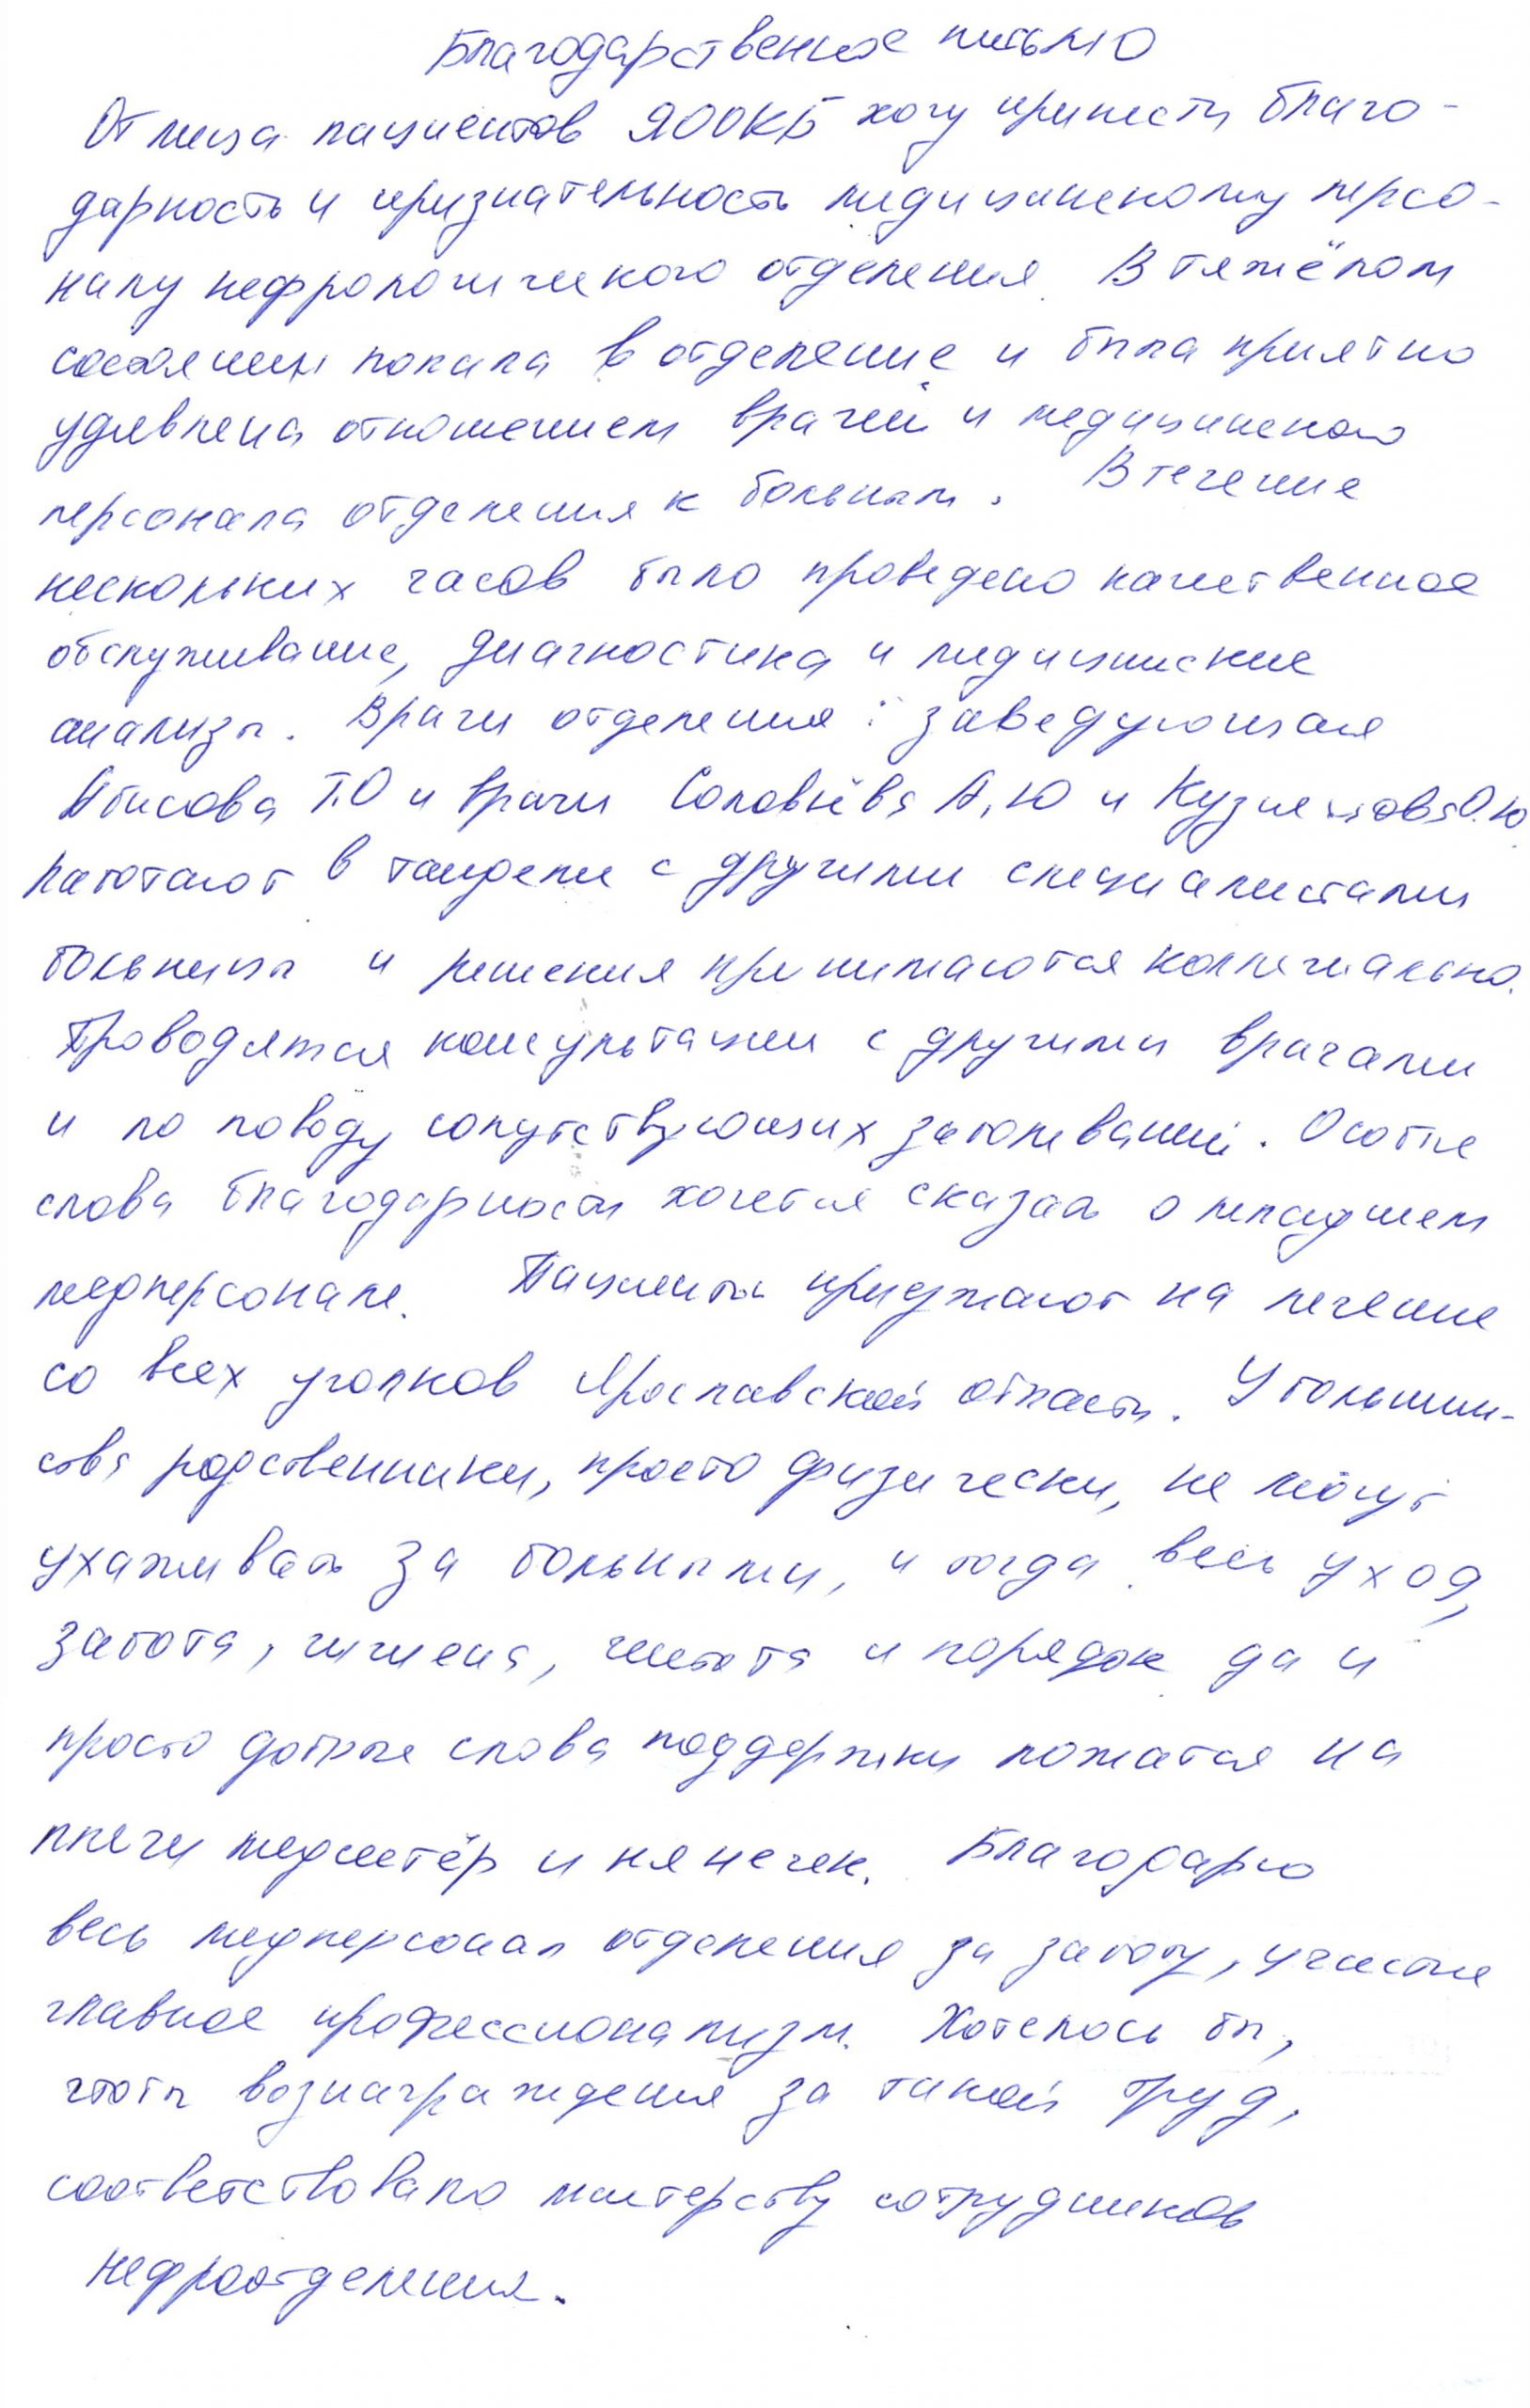 Благодарственное письмо
От лица пациентов ЯООКБ хочу принести благо-
дарность и признательность медицинскому персо-
налу нефрологического отделения. В тяжёлом
состоянии попала в отделение и была приятно
удивлена отношением врачей и медицинского
персонала отделения к больным. В течение
нескольких часов было проведено качественное
обслуживание, диагностика и медицинские
анализы. Врачи отделения: заведующая
Абисова Т.О и врачи Соловьёва А,Ю и Кузнецова О.Ю
работают в тандеме с другими специалистами
больницы и решения принимаются коллегиально.
Проводятся консультации с другими врачами
и по поводу сопутствующих заболеваний. Особые
слова благодарности хочется сказать о младшем
медперсонале. Пациенты приезжают на лечение
со всех уголков Ярославской области. У большин-
ства родственники, просто физически, не могут
ухаживать за больными, и тогда весь уход,
забота, гигиена, чистота и порядок да и
просто добрые слова поддержки ложатся на
плечи медсестёр и нянечек. Благодарю
весь медперсонал отделения за заботу, участие
главное профессионализм. Хотелось бы,
чтобы вознаграждения за такой труд,
соответствовало мастерству сотрудников
нефроотделения.